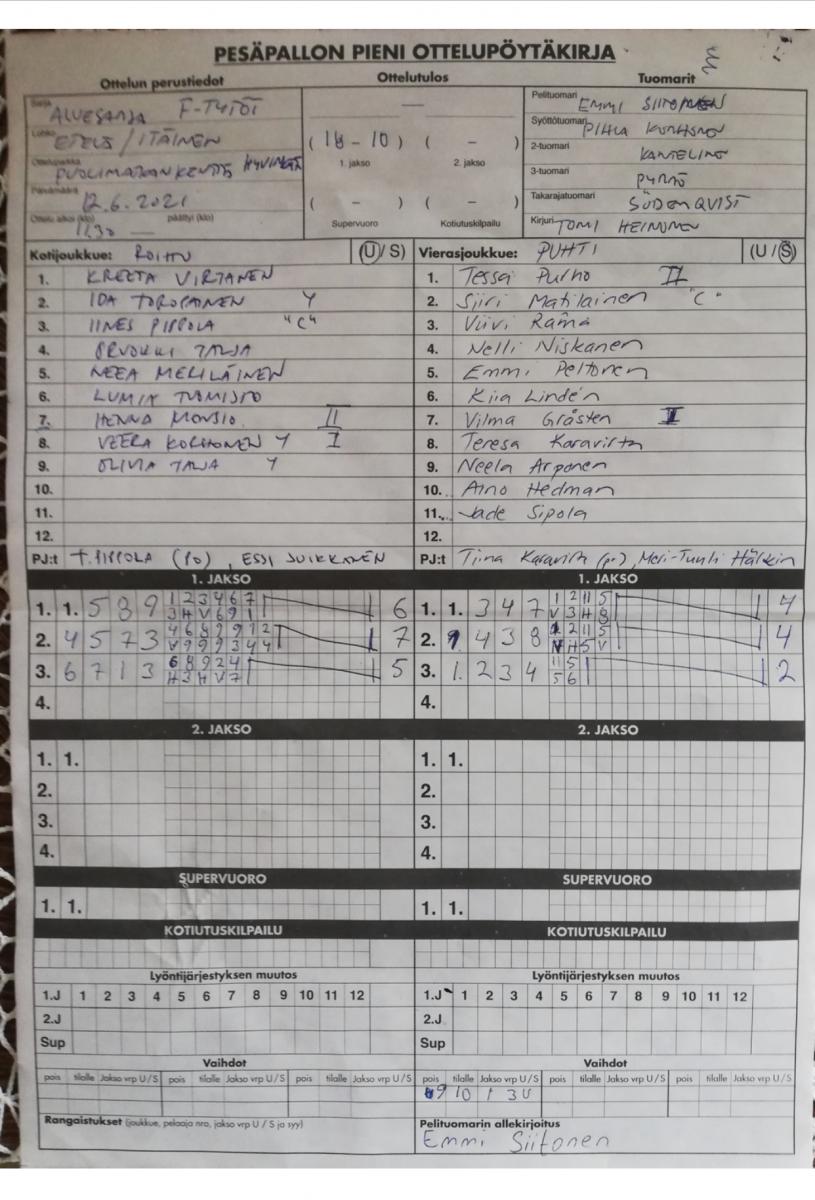 PESÄPALLON PIENI OTTELUPÖYTÄKIRJA
Ottelun perustiedot Ottelutulos Tuomarit
Sarja ALUESARJA F-TYTÖT
Lohko ETELÄ/ITÄINEN
Ottelupaikka PUOLIMATKAN KENTTÄ HYVINKÄÄ
Päivämäärä 12.6.2021
Ottelu alkoi (klo) 11.30 päättyi (klo) —
—
(18 - 10) ( - )
1. jakso 2. jakso
( - ) ( - )
Supervuoro Kotiutuskilpailu
Pelituomari EMMI SIITONEN
Syöttötuomari PIHLA KORHONEN
2-tuomari KANTELINO
3-tuomari
Takarajatuomari SÖDERQVIST
Kirjuri TOMI HEINONEN
Kotijoukkue: ROIHU (U/S)
1. KREETA VIRTANEN
2. IDA TOROPAINEN Y
3. IINES PIPPOLA "C"
4. ORVOKKI TALJA
5. NEEA MERILÄINEN
6. LUMIA TUOMISTO
7. HENNA MONSIO II
8. VEERA KORHONEN Y I
9. OLIVIA TALJA Y
10.
11.
12.
PJ:t T. PIPPOLA (PO), ESSI SUIKKANEN
Vierasjoukkue: PUHTI (U/S)
1. Tessa Purho II
2. Siiri Matilainen "C"
3. Viivi Rämä
4. Nelli Niskanen
5. Emmi Peltonen
6. Kiia Lindén
7. Vilma Grästen I
8. Teresa Karavirta
9. Neela Arponen
10. Aino Hedman
11. Jade Sipola
12.
PJ:t Tiina Karavirta (pn), Meri-Tuuli
1. JAKSO 1. JAKSO
1. 1. 5 8 9 1 2 3 4 6 7 1 6
3 H V 6 9 1
2. 4 5 7 3 4 6 8 9 9 1 2 1 7
V 9 9 9 3 4 4
3. 6 7 1 3 6 8 9 2 4 1 5
H 3 H V 7
4.
1. 1. 3 4 7 1 2 11 5 1 4
V 3 H 8
2. 9 4 3 8 1 2 11 5 1 4
V H 5 V
3. 1. 2 3 4 11 5 1 2
5 6
4.
2. JAKSO 2. JAKSO
1. 1. 1. 1.
2. 2.
3. 3.
4. 4.
SUPERVUORO SUPERVUORO
1. 1. 1. 1.
KOTIUTUSKILPAILU KOTIUTUSKILPAILU
Lyöntijärjestyksen muutos Lyöntijärjestyksen muutos
1.J 1 2 3 4 5 6 7 8 9 10 11 12 1.J 1 2 3 4 5 6 7 8 9 10 11 12
2.J 2.J
Sup Sup
Vaihdot Vaihdot
pois tilalle Jakso vrp U/S pois tilalle Jakso vrp U/S pois tilalle Jakso vrp U/S pois tilalle Jakso vrp U/S pois tilalle Jakso vrp U/S pois tilalle Jakso vrp U/S
9 10 1 3U
Rangaistukset (joukkue, pelaaja nro, jakso vrp U / S ja syy) Pelituomarin allekirjoitus
Emmi Siitonen